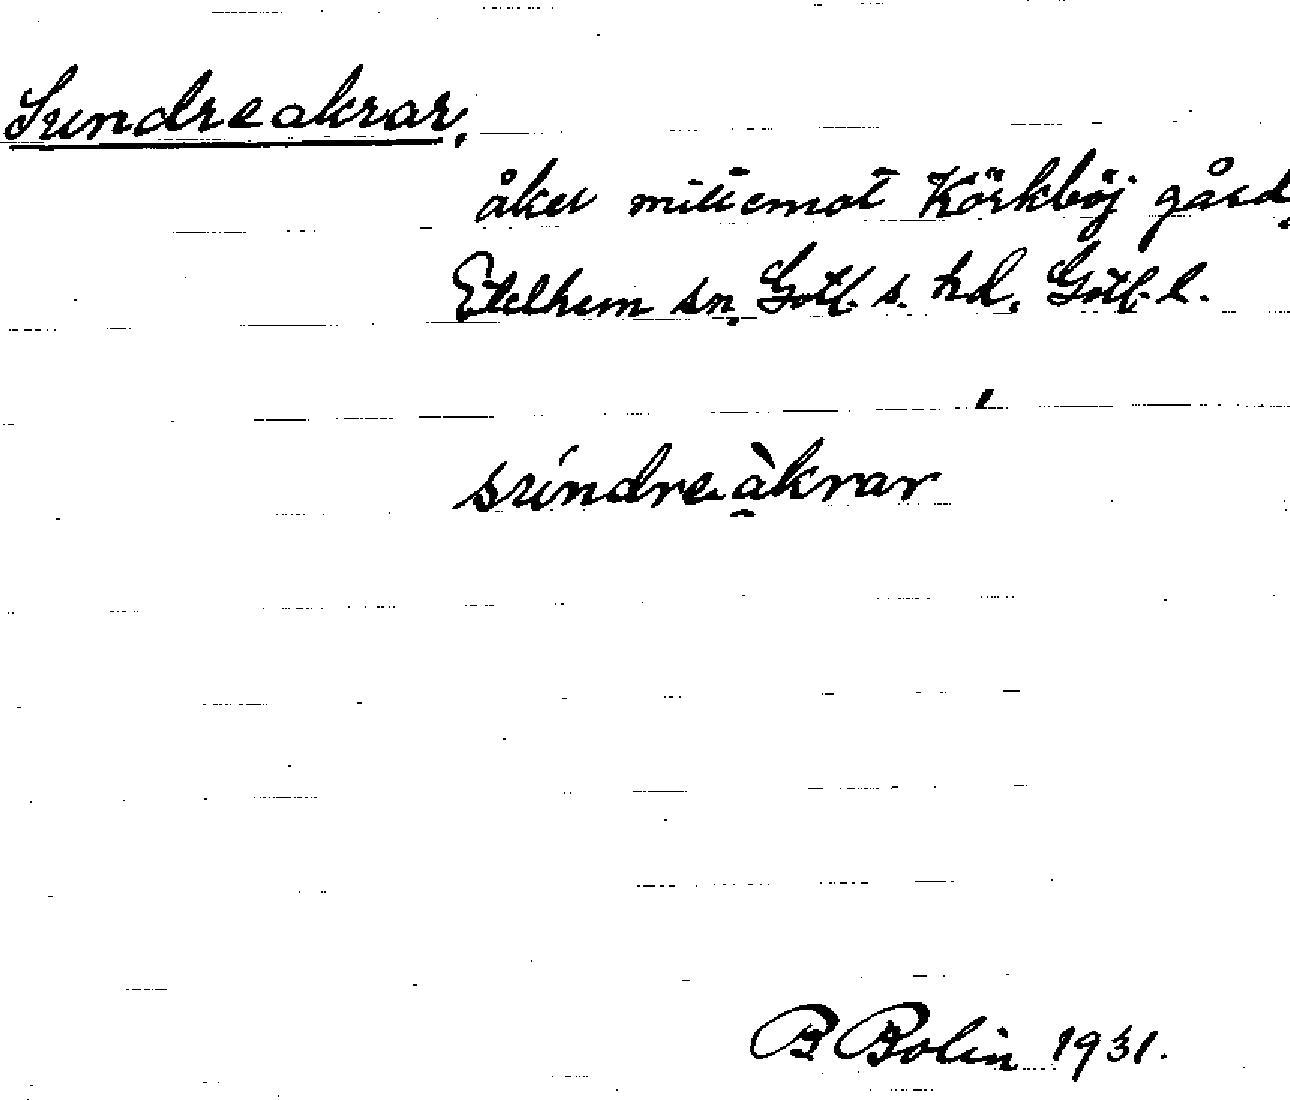 Sundreakrar,
åker mittemot Körkböj gård,
Etelhem sn. Gotl. s. hd, Gotl. l.
súndreàkrar
B Bolin 1931.